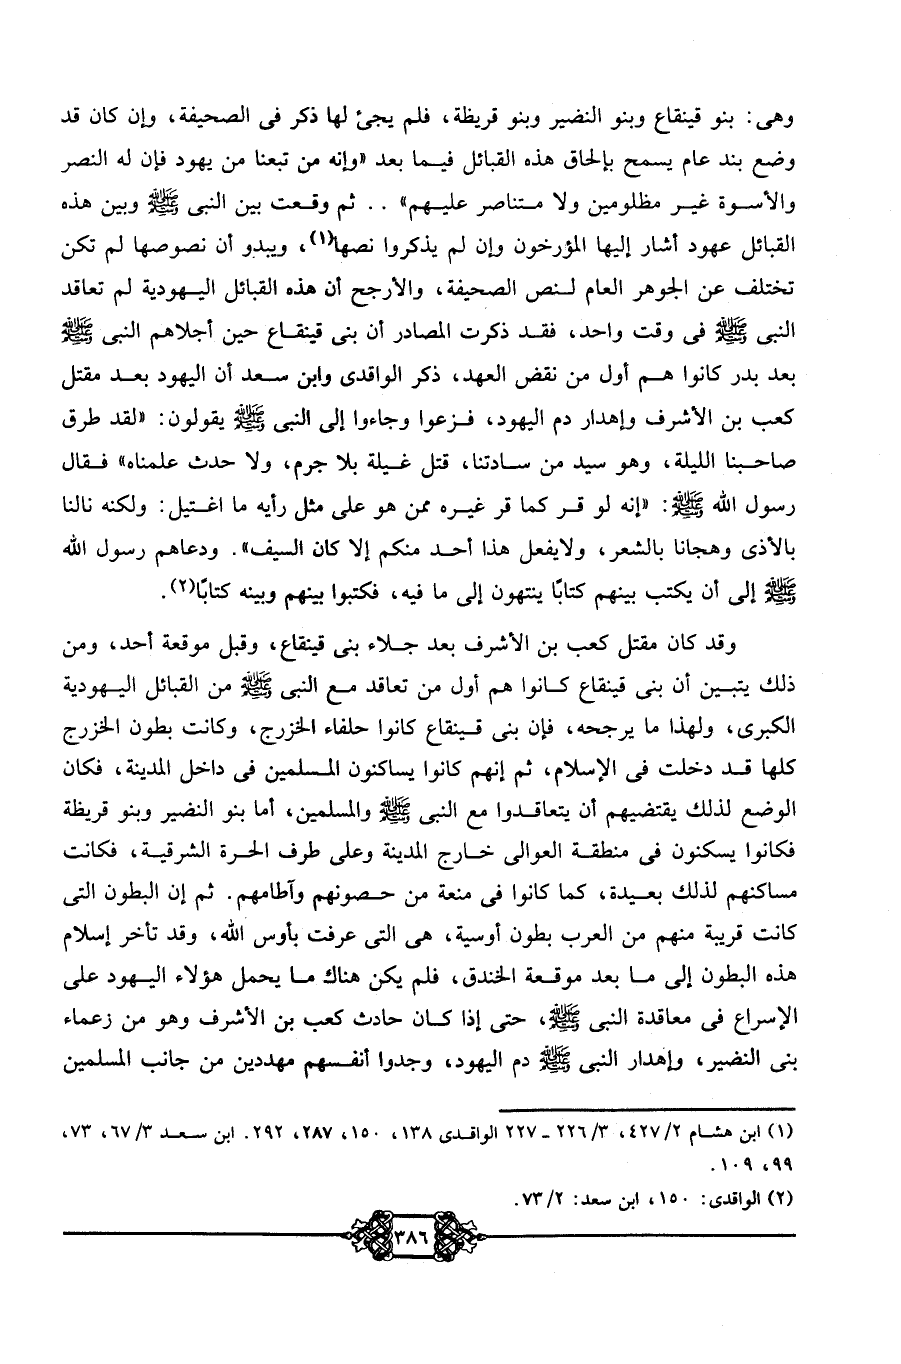 وهى: بنو قينقاع وبنو النضير وبنو قريظة، فلم يجئ لها ذكر فى الصحيفة، وإن كان قد
وضع بند عام يسمح بإلحاق هذه القبائل فيما بعد «وإنه من تبعنا من يهود فإن له النصر
والأسوة غير مظلومين ولا متناصر عليهم» .. ثم وقعت بين النبى ﷺ وبين هذه
القبائل عهود أشار إليها المؤرخون وإن لم يذكروا نصها(١)، ويبدو أن نصوصها لم تكن
تختلف عن الجوهر العام لنص الصحيفة، والأرجح أن هذه القبائل اليهودية لم تعاقد
النبى ﷺ فى وقت واحد، فقد ذكرت المصادر أن بنى قينقاع حين أجلاهم النبى ﷺ
بعد بدر كانوا هم أول من نقض العهد، ذكر الواقدى وابن سعد أن اليهود بعد مقتل
كعب بن الأشرف وإهدار دم اليهود، فزعوا وجاءوا إلى النبى ﷺ يقولون: «لقد طرق
صاحبنا الليلة، وهو سيد من سادتنا، قتل غيلة بلا جرم، ولا حدث علمناه» فقال
رسول الله ﷺ: «إنه لو قر كما قر غيره ممن هو على مثل رأيه ما اغتيل: ولكنه نالنا
بالأذى وهجانا بالشعر، ولايفعل هذا أحد منكم إلا كان السيف». ودعاهم رسول الله
ﷺ إلى أن يكتب بينهم كتابًا ينتهون إلى ما فيه، فكتبوا بينهم وبينه كتابًا(٢).
وقد كان مقتل كعب بن الأشرف بعد جلاء بنى قينقاع، وقبل موقعة أحد، ومن
ذلك يتبين أن بنى قينقاع كانوا هم أول من تعاقد مع النبى ﷺ من القبائل اليهودية
الكبرى، ولهذا ما يرجحه، فإن بنى قينقاع كانوا حلفاء الخزرج، وكانت بطون الخزرج
كلها قد دخلت فى الإسلام، ثم إنهم كانوا يساكنون المسلمين فى داخل المدينة، فكان
الوضع لذلك يقتضيهم أن يتعاقدوا مع النبى ﷺ والمسلمين، أما بنو النضير وبنو قريظة
فكانوا يسكنون فى منطقة العوالى خارج المدينة وعلى طرف الحرة الشرقية، فكانت
مساكنهم لذلك بعيدة، كما كانوا فى منعة من حصونهم وآطامهم. ثم إن البطون التى
كانت قريبة منهم من العرب بطون أوسية، هى التى عرفت بأوس الله، وقد تأخر إسلام
هذه البطون إلى ما بعد موقعة الخندق، فلم يكن هناك ما يحمل هؤلاء اليهود على
الإسراع فى معاقدة النبى ﷺ، حتى إذا كان حادث كعب بن الأشرف وهو من زعماء
بنى النضير، وإهدار النبى ﷺ دم اليهود، وجدوا أنفسهم مهددين من جانب المسلمين
(١) ابن هشام ٢/ ٤٢٧، ٣/ ٢٢٦ ـ ٢٢٧ الواقدى ١٣٨، ١٥٠، ٢٨٧، ٢٩٢. ابن سعد ٣/ ٦٧، ٧٣،
٩٩، ١٠٩.
(٢) الواقدى: ١٥٠، ابن سعد: ٢/ ٧٣.
٣٨٦